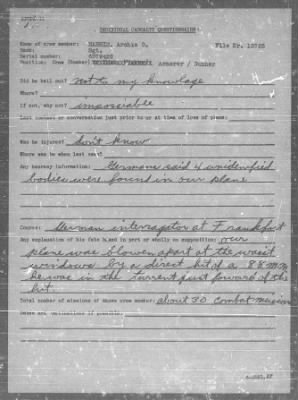 INDIVIDUAL CASUALTY QUESTIONNAIRE
Name of crew member: Archie D. File Nr. 
Rank: Sgt.
Serial number:
Position: Crew (Bomber) Armorer / Gunner
Did he bail out? not to my knowlage
Where?
If not, why not? impossiable
Last contact or conversation just prior to or at time of loss of plane:
Was he injured? don't know
Where was he when last seen?
Any hearsay information: Germans said 4 unidenified
bodies were found in our plane
Source: German interragator at Frankfort
Any explanation of his fate based in part or wholly on supposition: our
plane was blowen apart at the waist
windows by a direct hit of a 88 MM
he was in the turret just forward of the
hit.
Total number of missions of above crew member: about 30 combat mission
Dates and destinations if possible: